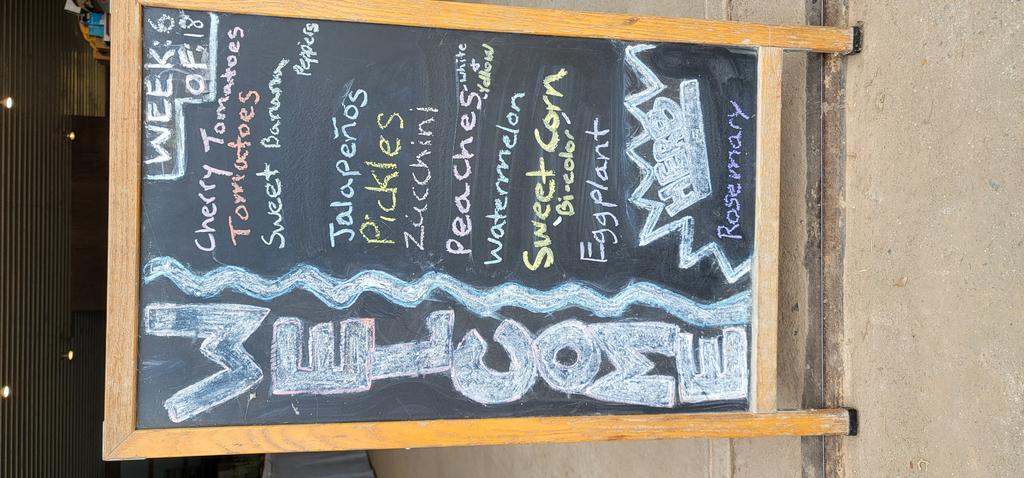 WELCOME
WEEK: 6
OF 18
Cherry Tomatoes
Tomatoes
Sweet Banana
Peppers
Jalapeños
Pickles
Zucchini
Peaches - white
+
yellow
Watermelon
Sweet Corn
Bi-color
Eggplant
HERB
Rosemary